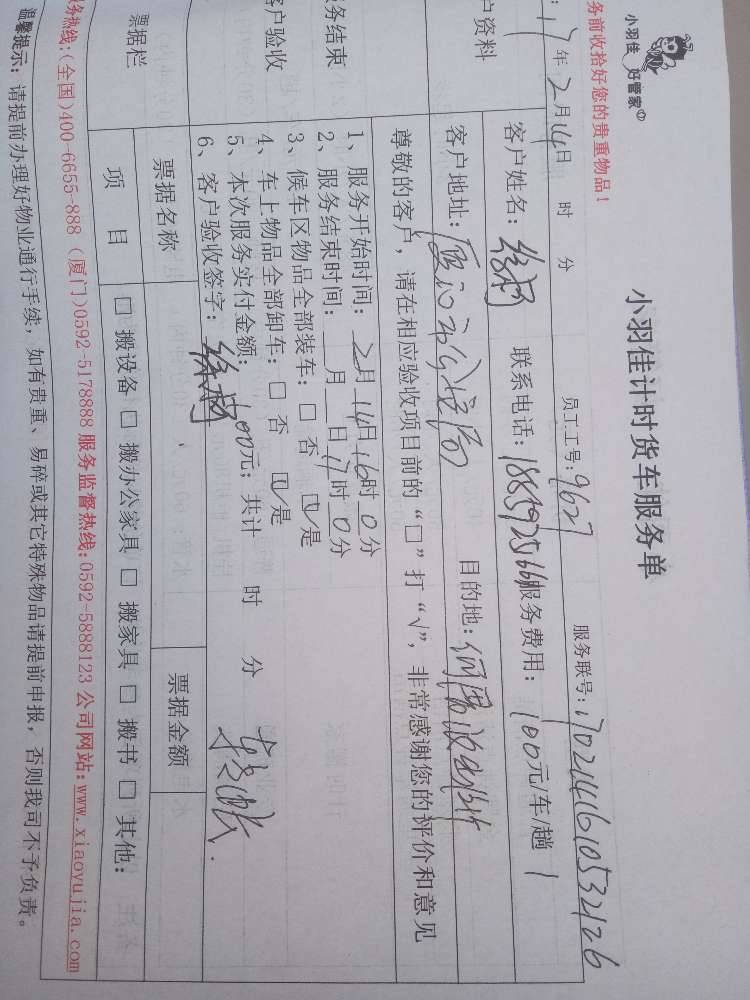 小羽佳 好管家
小羽佳计时货车服务单
务前收拾好您的贵重物品！
17年2月14日 时 分 员工工号：9627 服务联号：1702141610532126
户资料 客户姓名： 联系电话： 服务费用：100元/车/趟
客户地址： 目的地：
尊敬的客户，请在相应验收项目前的“□”打“√”，非常感谢您的评价和意见
务结束
1、服务开始时间：2月14日16时0分
2、服务结束时间： 月 日17时0分
3、候车区物品全部装车：□ 否 □ 是
4、车上物品全部卸车：□ 否 □ 是
客户验收
5、本次服务实付金额：100元；共计 时 分
6、客户验收签字： 转账.
票据栏 票据名称 票据金额
项 目 □ 搬设备 □ 搬办公家具 □ 搬家具 □ 搬书 □ 其他：
务热线：(全国)400-6655-888 (厦门)0592-5178888 服务监督热线：0592-5888123 公司网站：www.xiaoyujia.com
温馨提示：请提前办理好物业通行手续，如有贵重、易碎或其它特殊物品请提前申报，否则我司不予负责。